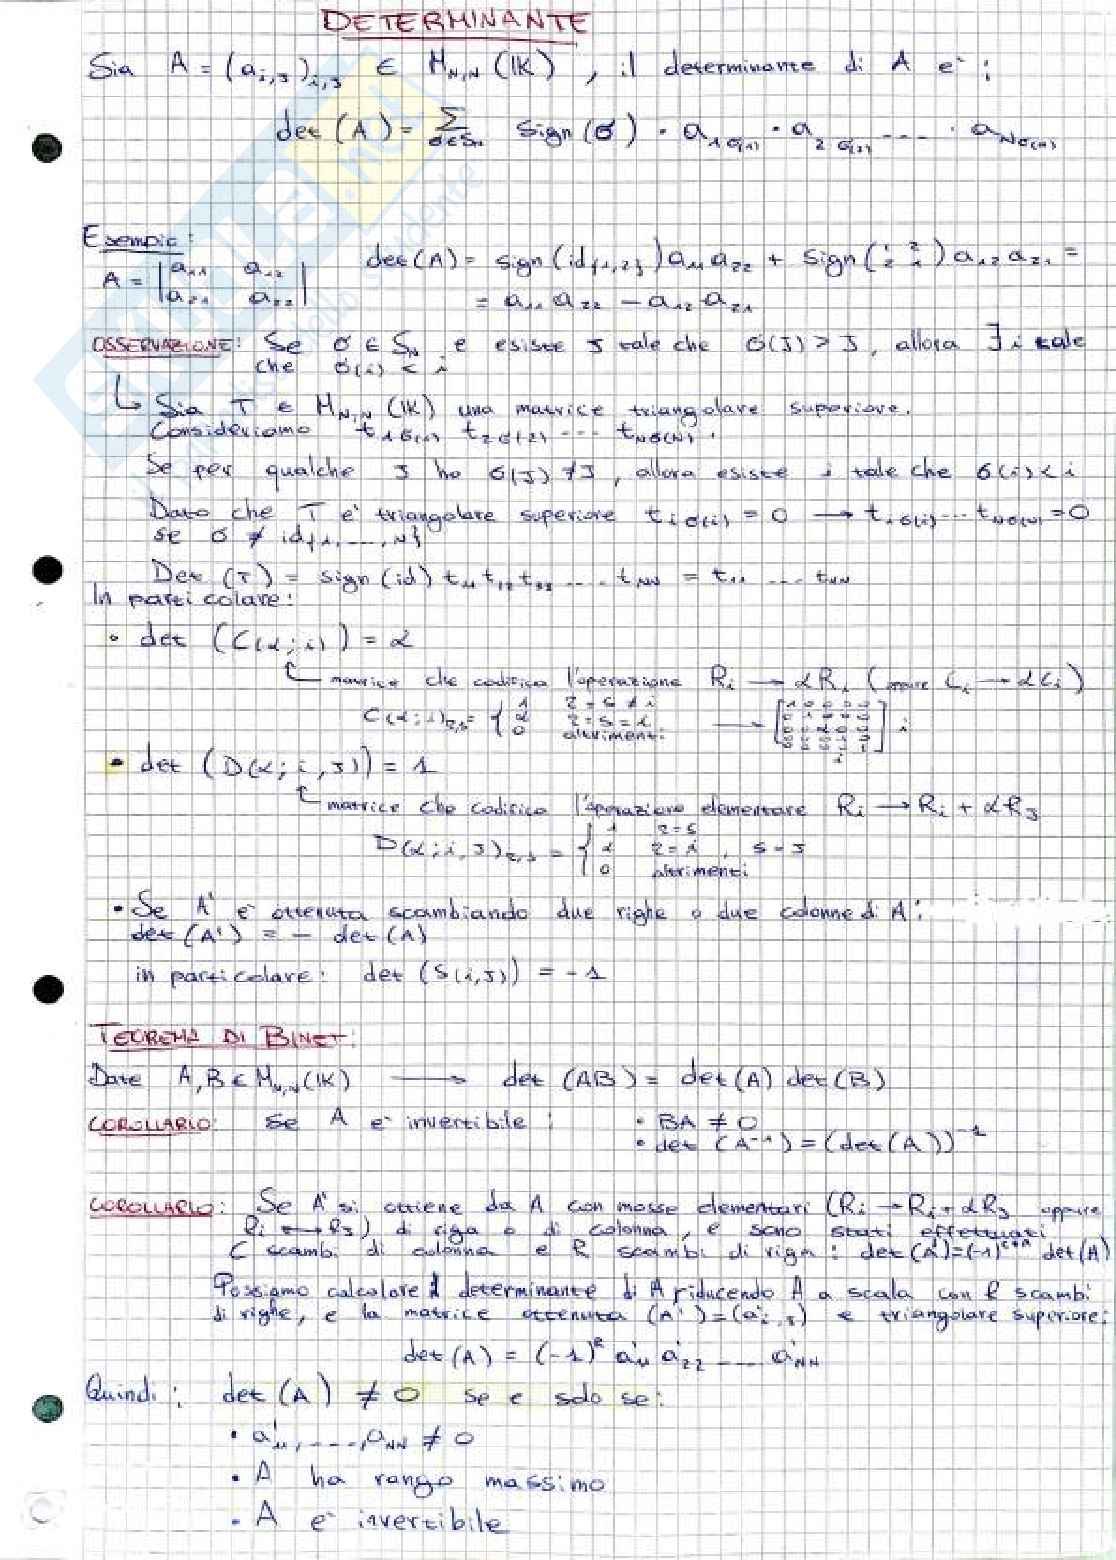 DETERMINANTE
Sia A = (a_{i,J})_{i,J} ∈ M_{N,N} (IK) , il determinante di A e` :
det (A) = Σ_{σ∈S_n} sign (σ) · a_{1σ(1)} · a_{2σ(2)} ---- · a_{Nσ(N)}
Esempio:
A = |a_{11} a_{12}| det(A) = sign (id_{{1,2}}) a_{11} a_{22} + sign (1 2 / 2 1) a_{12} a_{21} =
|a_{21} a_{22}| = a_{11} a_{22} - a_{12} a_{21}
OSSERVAZIONE: Se σ ∈ S_N e esiste J tale che σ(J) > J, allora ∃ i tale
che σ(i) < i
↳ Sia T ∈ M_{N,N} (IK) una matrice triangolare superiore.
Consideriamo t_{1σ(1)} t_{2σ(2)} --- t_{Nσ(N)} .
Se per qualche J ho σ(J) ≠ J , allora esiste i tale che σ(i) < i
Dato che T e` triangolare superiore t_{iσ(i)} = 0 → t_{1σ(1)} --- t_{Nσ(N)} = 0
se σ ≠ id_{{1,---,N}}
Det (T) = sign (id) t_{11} t_{12} t_{33} --- t_{NN} = t_{11} --- t_{NN}
In particolare:
• det (C(α;i)) = α
matrice che codifica l'operazione R_i → αR_i (oppure C_i → αC_i)
C(α;i)_{r,s} = { 1 r=s≠i
α r=s=i
0 altrimenti →
i
• det (D(α;i,J)) = 1
matrice che codifica l'operazione elementare R_i → R_i + αR_J
D(α;i,J)_{r,s} = { 1 r=s
α r=i , s=J
0 altrimenti
• Se A' e` ottenuta scambiando due righe o due colonne di A:
det (A') = - det (A)
in particolare: det (S(i,J)) = -1
TEOREMA DI BINET:
Date A,B ∈ M_{N,N} (IK) → det (AB) = det (A) det (B)
COROLLARIO: Se A e` invertibile : • BA ≠ 0
• det (A^{-1}) = (det (A))^{-1}
COROLLARIO: Se A' si ottiene da A con mosse elementari (R_i → R_i + αR_J oppure
R_i ↔ R_J) di riga o di colonna, e sono stati effettuati
C scambi di colonna e R scambi di riga : det (A') = (-1)^{C+R} det (A)
Possiamo calcolare il determinante di A riducendo A a scala con R scambi
di righe, e la matrice ottenuta (A') = (a'_{i,J}) e triangolare superiore:
det (A) = (-1)^R a'_{11} a'_{22} ---- a'_{NN}
Quindi : det (A) ≠ 0 se e solo se:
• a'_{11}, ----, a_{NN} ≠ 0
• A ha rango massimo
• A e` invertibile